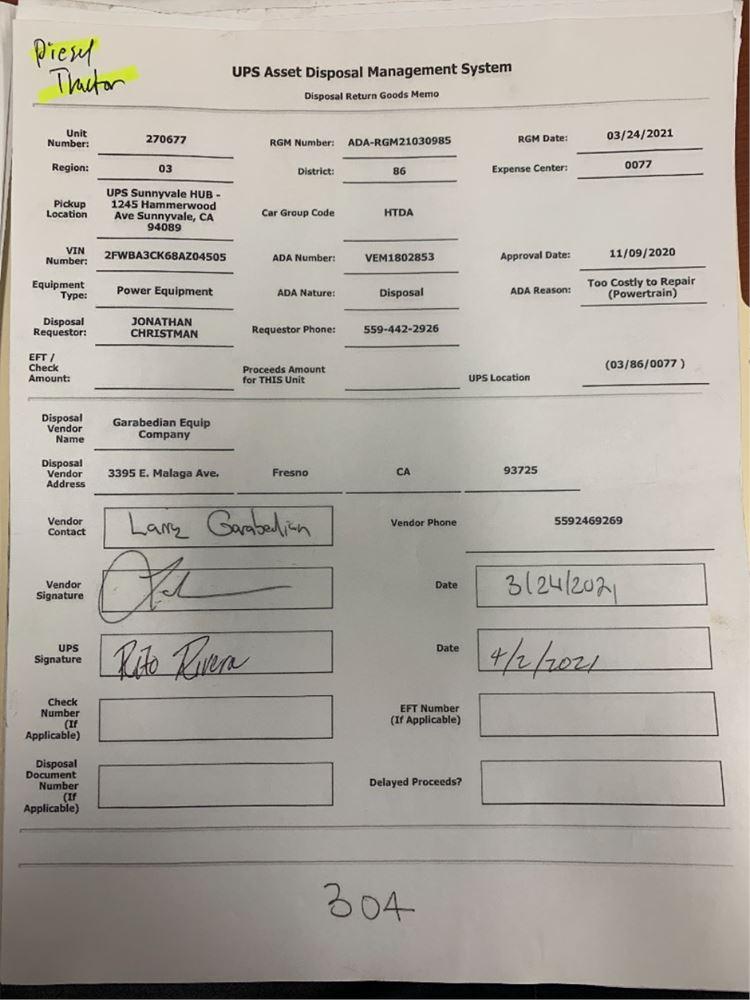 Diesel
Tractor
UPS Asset Disposal Management System
Disposal Return Goods Memo
Unit Number: 270677 RGM Number: ADA-RGM21030985 RGM Date: 03/24/2021
Region: 03 District: 86 Expense Center: 0077
Pickup Location UPS Sunnyvale HUB - 1245 Hammerwood Ave Sunnyvale, CA 94089 Car Group Code HTDA
VIN Number: 2FWBA3CK68AZ04505 ADA Number: VEM1802853 Approval Date: 11/09/2020
Equipment Type: Power Equipment ADA Nature: Disposal ADA Reason: Too Costly to Repair (Powertrain)
Disposal Requestor: JONATHAN CHRISTMAN Requestor Phone: 559-442-2926
EFT / Check Amount: Proceeds Amount for THIS Unit UPS Location (03/86/0077 )
Disposal Vendor Name Garabedian Equip Company
Disposal Vendor Address 3395 E. Malaga Ave. Fresno CA 93725
Vendor Contact Larry Garabedian Vendor Phone 5592469269
Vendor Signature Date 3/24/2021
UPS Signature Rito Rivera Date 4/2/2021
Check Number (If Applicable) EFT Number (If Applicable)
Disposal Document Number (If Applicable) Delayed Proceeds?
304